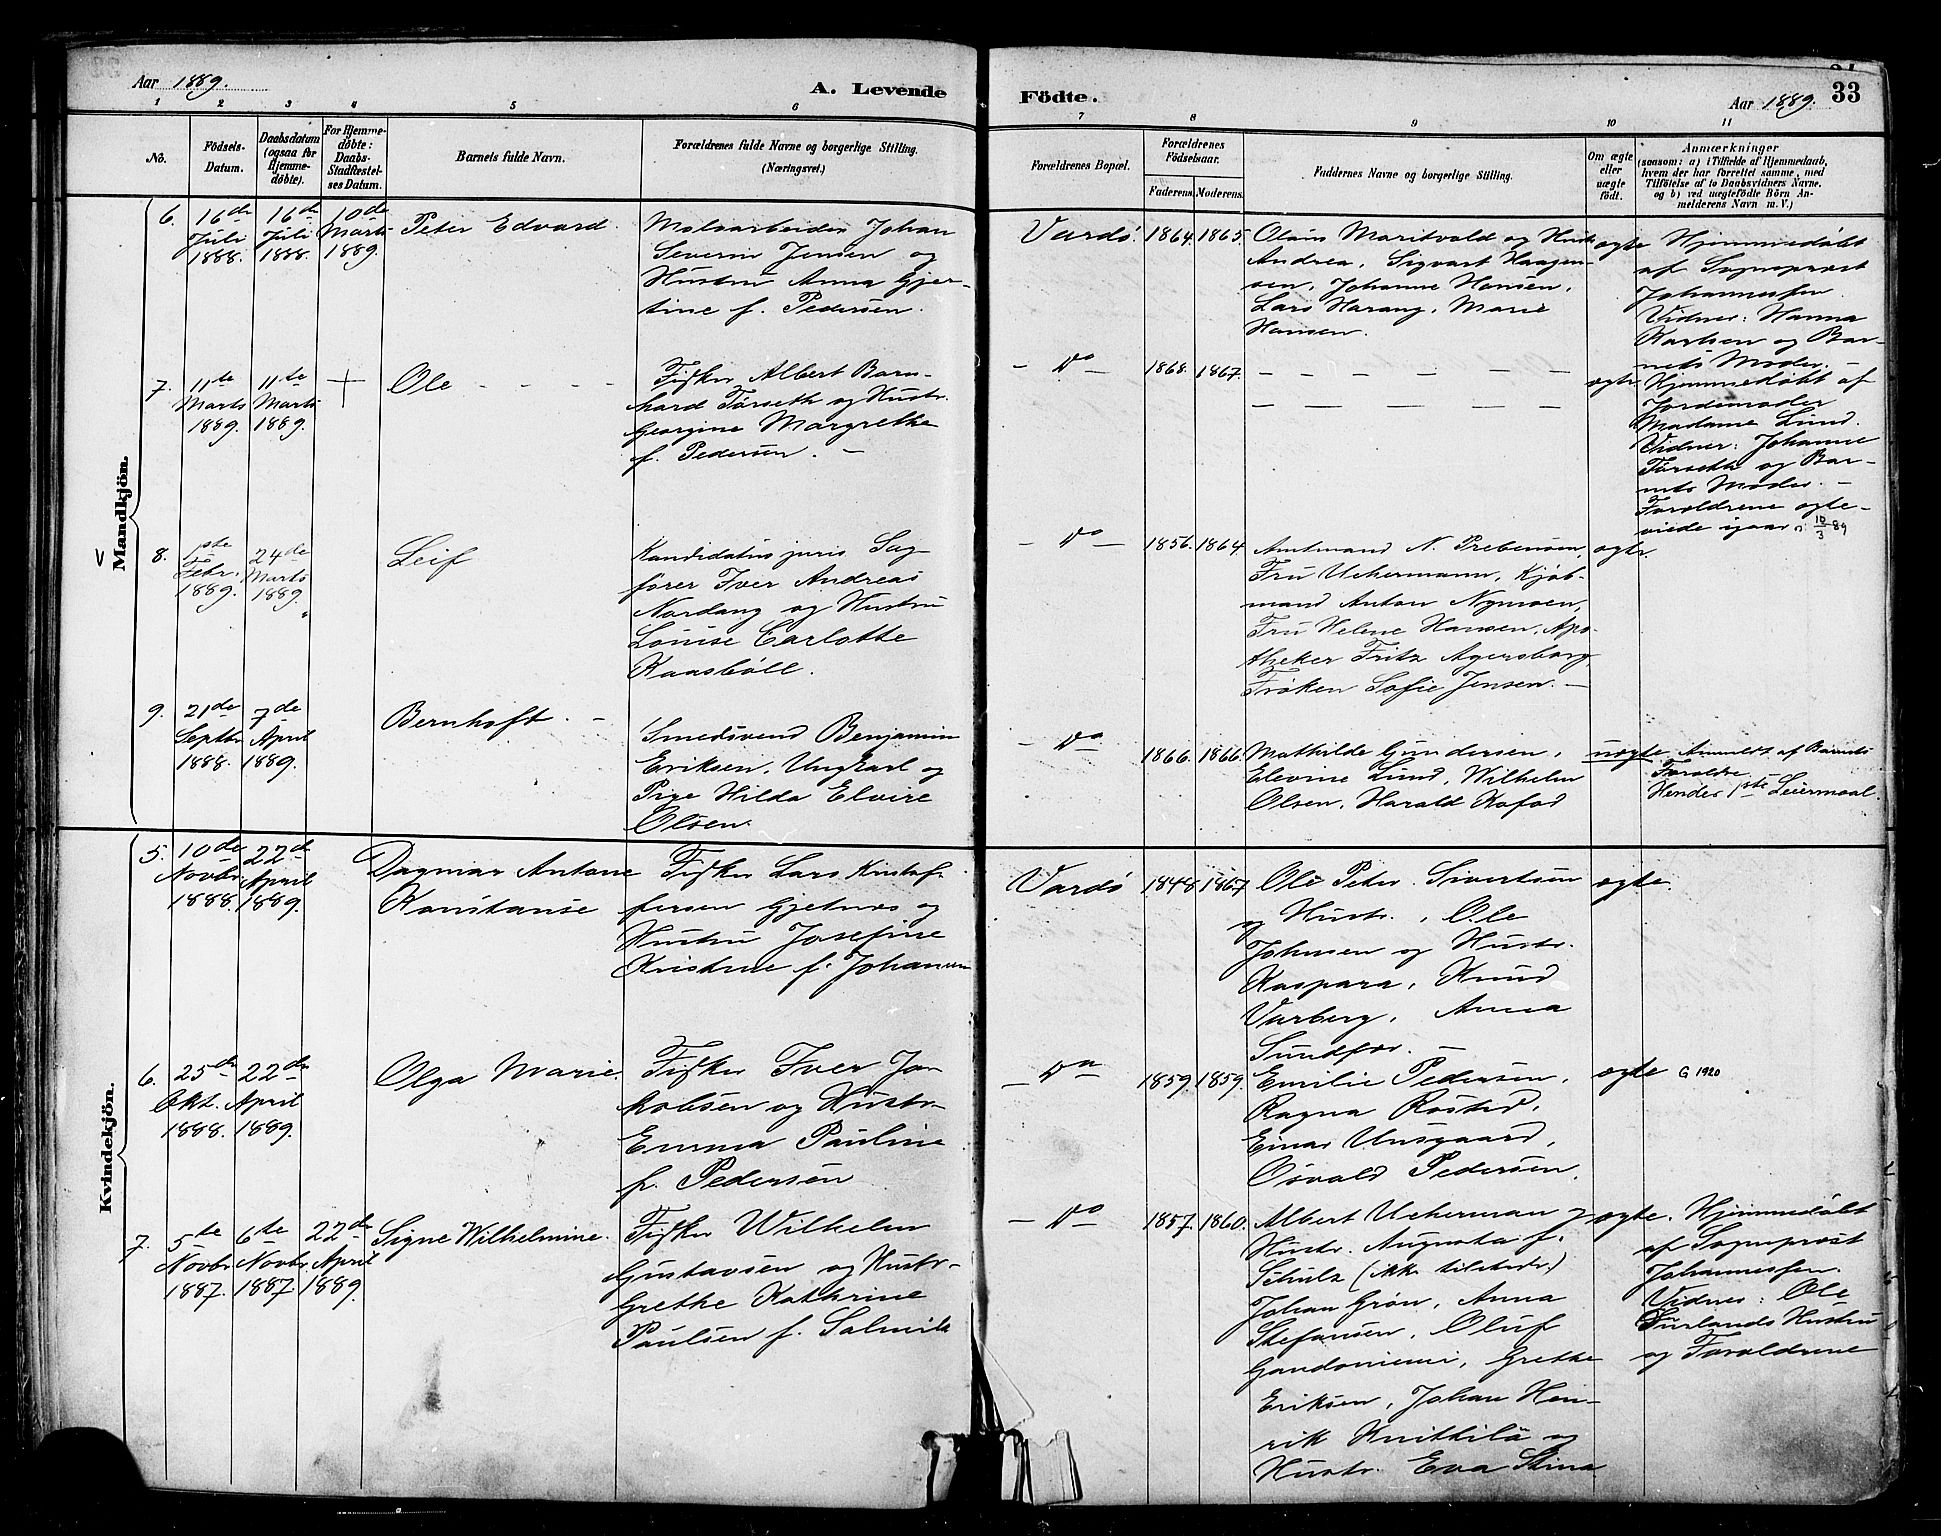 Aar 1889.
A. Levende
Födte.
Aar 1889.
33
1 2 3 4 5 6 7 8 9 10 11
No.
Födsels-
Datum.
Daabsdatum
(ogsaa for
Hjemme-
döbte).
For Hjemme-
döbte:
Daabs-
Stadfæstel-
ses Datum.
Barnets fulde Navn.
Forældrenes fulde Navne og borgerlige Stilling.
(Næringsvei.)
Forældrenes Bopæl.
Forældrenes
Födselsaar.
Faderens. Moderens.
Faddernes Navne og borgerlige Stilling.
Om ægte
eller
uægte
födt.
Anmærkninger
(saasom: a) i Tilfælde af Hjemmedaab,
hvem der har forrettet samme, med
Tilföielse af to Daabsvidners Navne.
og b) ved uægtefödte Börn An-
melderens Navn m. V.)
Mandkjön.
6.
16de
Juli
1888.
16de
Juli
1888.
10de
Marts
1889.
Peter Edvard.
Moloarbeider Johan
Severin Jensen og
Hustru Anna Gjer-
tine f. Pedersen.
Vardö.
1864. 1865.
Olaus Maritvold og Hustr.
Andrea, Sigvart Haagen-
sen, Johanne Hansen,
Lars Harang, Marie
Hansen.
ægte
Hjemmedøbt
af Sogneprest
Johannessen.
Vidner: Hanna
Karlsen og Bar-
nets Moder. —
7.
11te
Marts
1889.
11te
Marts
1889.
+
Ole
Fisker Albert Barn-
hard Førseth og Hustr.
Georgine Margrethe
f. Pedersen. —
— Do —
1868. 1867.
ægte
Hjemmedøbt af
Jordemoder
Madame Lund.
Vidner: Johanne
Førseth og Bar-
nets Moder. —
Forældrene ægte-
viede igaar 10/3 89
8.
1ste
Febr.
1889.
24de
Marts
1889.
Leif
Kandidatus juris Sag-
fører Iver Andreas
Nordang og Hustru
Louise Carlotte
Kaasbøll.
— Do —
1856. 1864
Amtmand N. Prebensen,
Fru Uchermann, Kjøb-
mand Anton Nymoen,
Fru Helene Hansen, Apo-
theker Fritz Agersborg
Frøken Sofie Jensen. —
ægte.
9.
21de
Septbr
1888.
7de
April
1889.
Bernhoft. —
Smedsvend Benjamin
Eriksen, Ungkarl og
Pige Hilda Elvire
Olsen.
— Do —
1866. 1866.
Mathilde Gundersen,
Elevine Lund, Wilhelm
Olsen, Harald Kofod
uægte
Anmeldt af Barnets
Forældre.
Hendes 1ste Leiermaal.
Kvindekjön.
5.
10de
Novbr.
1888.
22de
April
1889.
Dagmar Antone
Konstanse
Fisker Lars Kristof-
fersen Gjetnæs og
Hustru Josefine
Kristine f. Johansen
Vardö
1848. 1867
Ole Peter Sivertsen
og Hustr., Ole
Johnsen og Hustr.
Kaspara, Knud
Varberg, Anna
Sundfær. —
ægte.
6.
25de
Okt.
1888.
22de
April
1889.
Olga Marie.
Fisker Iver Ja-
kobsen og Hustr.
Emma Pauline
f. Pedersen
— Do —
1859. 1859.
Emilie Pedersen,
Ragna Røsted,
Einar Unsgaard,
Osvald Pedersen.
ægte
G 1920
7.
5te
Novbr
1887.
6te
Novbr
1887.
22de
April
1889.
Signe Wilhelmine.
Fisker Wilhelm
Gustavsen og Hustr.
Grethe Kathrine
Paulsen f. Salmila
— Do —
1857. 1860.
Albert Ucherman og
Hustr. Augusta f.
Schulz (ikke tilstede.)
Johan Grøn, Anna
Stefansen, Oluf
Gandoniemi, Grethe
Eriksen, Johan Hen-
rik Knittilä og
Hustr. Eva Stina
ægte.
Hjemmedøbt
af Sogneprest
Johannessen.
Vidner: Ole
Furlands Hustru
og Forældrene